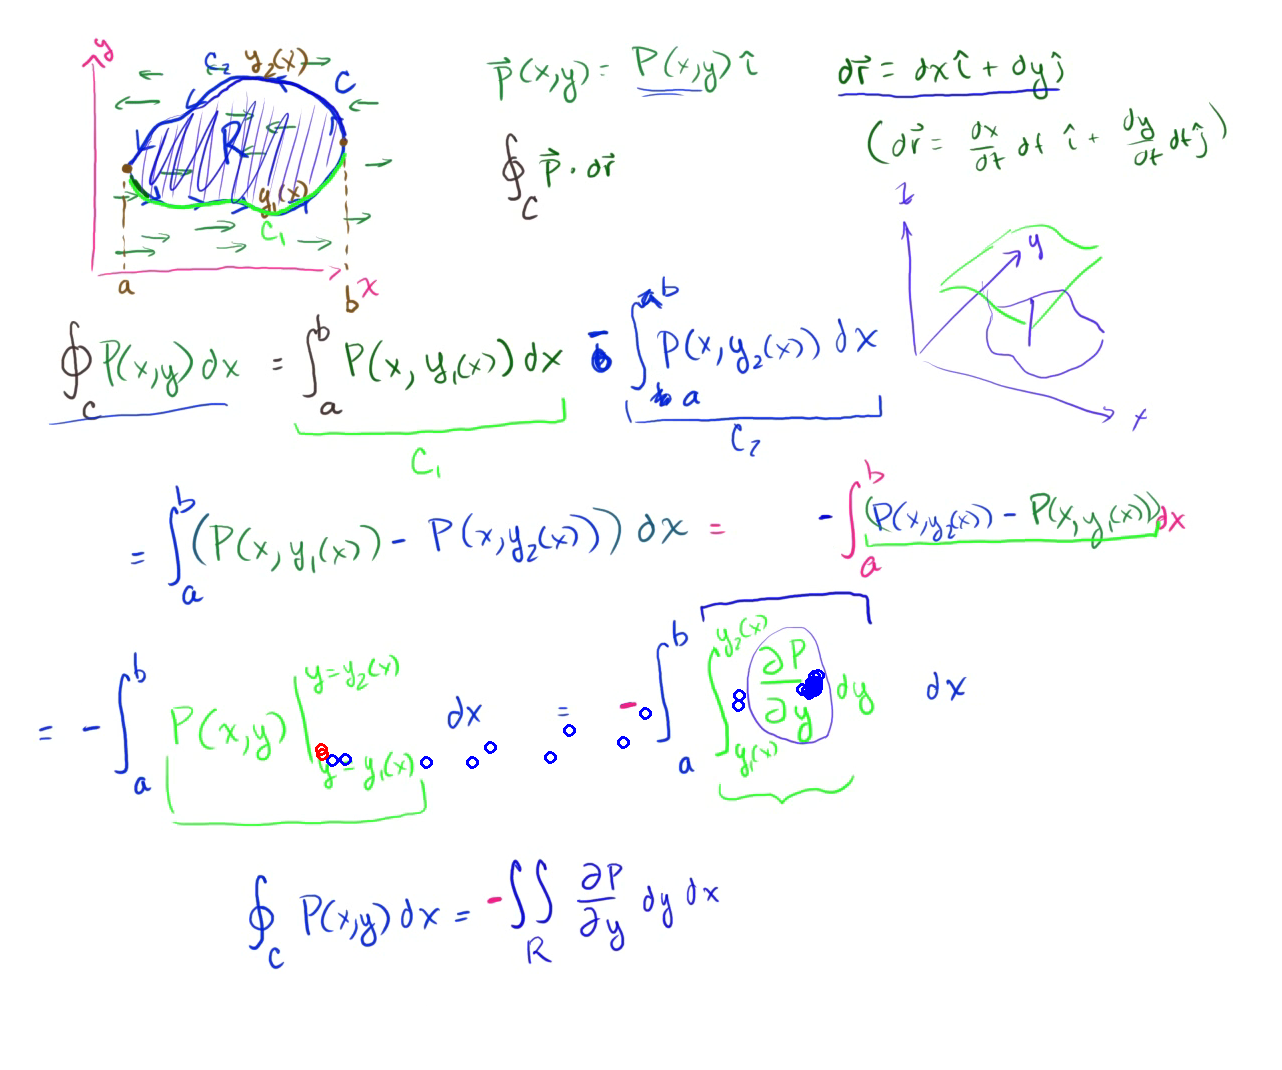 y
C₂ y₂(x) C
R
y₁(x)
C₁
a b x
P⃗(x,y) = P(x,y) î
dr⃗ = dx î + dy ĵ
∮_C P⃗ · dr⃗
(dr⃗ = dx/dt dt î + dy/dt dt ĵ)
z
y
x
∮_C P(x,y) dx = ∫_a^b P(x, y₁(x)) dx - ∫_a^b P(x, y₂(x)) dx
C₁ C₂
= ∫_a^b (P(x, y₁(x)) - P(x, y₂(x))) dx = - ∫_a^b (P(x, y₂(x)) - P(x, y₁(x))) dx
= - ∫_a^b P(x,y) |_{y = y₁(x)}^{y = y₂(x)} dx = - ∫_a^b ∫_{y₁(x)}^{y₂(x)} ∂P/∂y dy dx
∮_C P(x,y) dx = - ∬_R ∂P/∂y dy dx